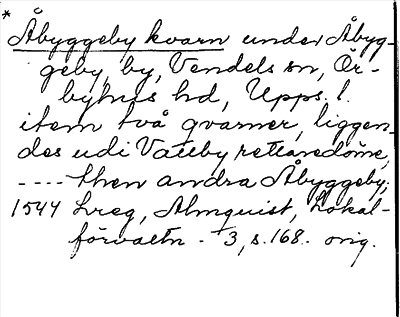 *
Åbyggeby kvarn under Åbyg-
geby, by, Vendels sn, Ör-
byhus hd, Upps. l.
item två qvarner, liggen-
des udi Vatteby rettaredöme,
---- then andra Åbyggeby;
1544 Lreg, Almquist, Lokal-
förvaltn. 3, s. 168. orig.